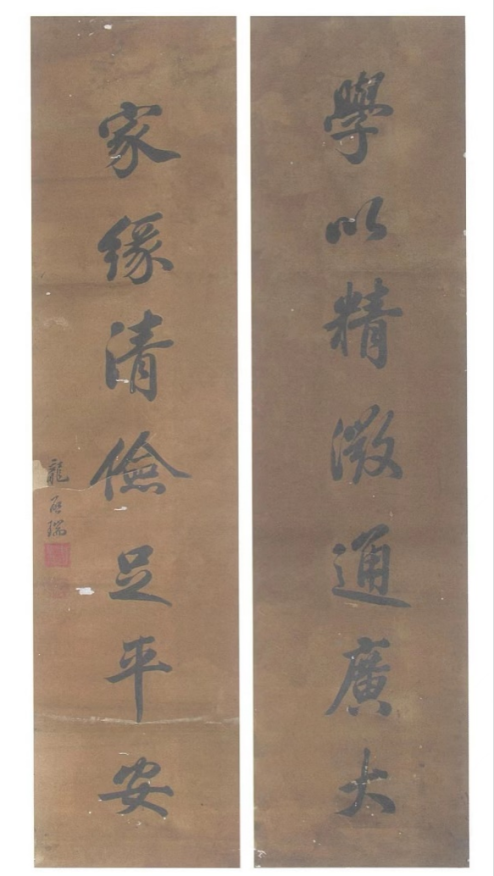 學以精微通廣大
家緣清儉足平安
龍啟瑞